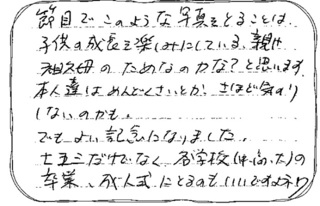 節目でこのような写真をとることは、
子供の成長を楽しみにしている、親や
祖父母のためなのかな?と思います
本人達はめんどくさいとか、さほど気のり
しないのかも。
でもよい記念になりました。
七五三だけでなく、各学校(中、高、大)の
卒業、成人式にとるのもいいですよネ!